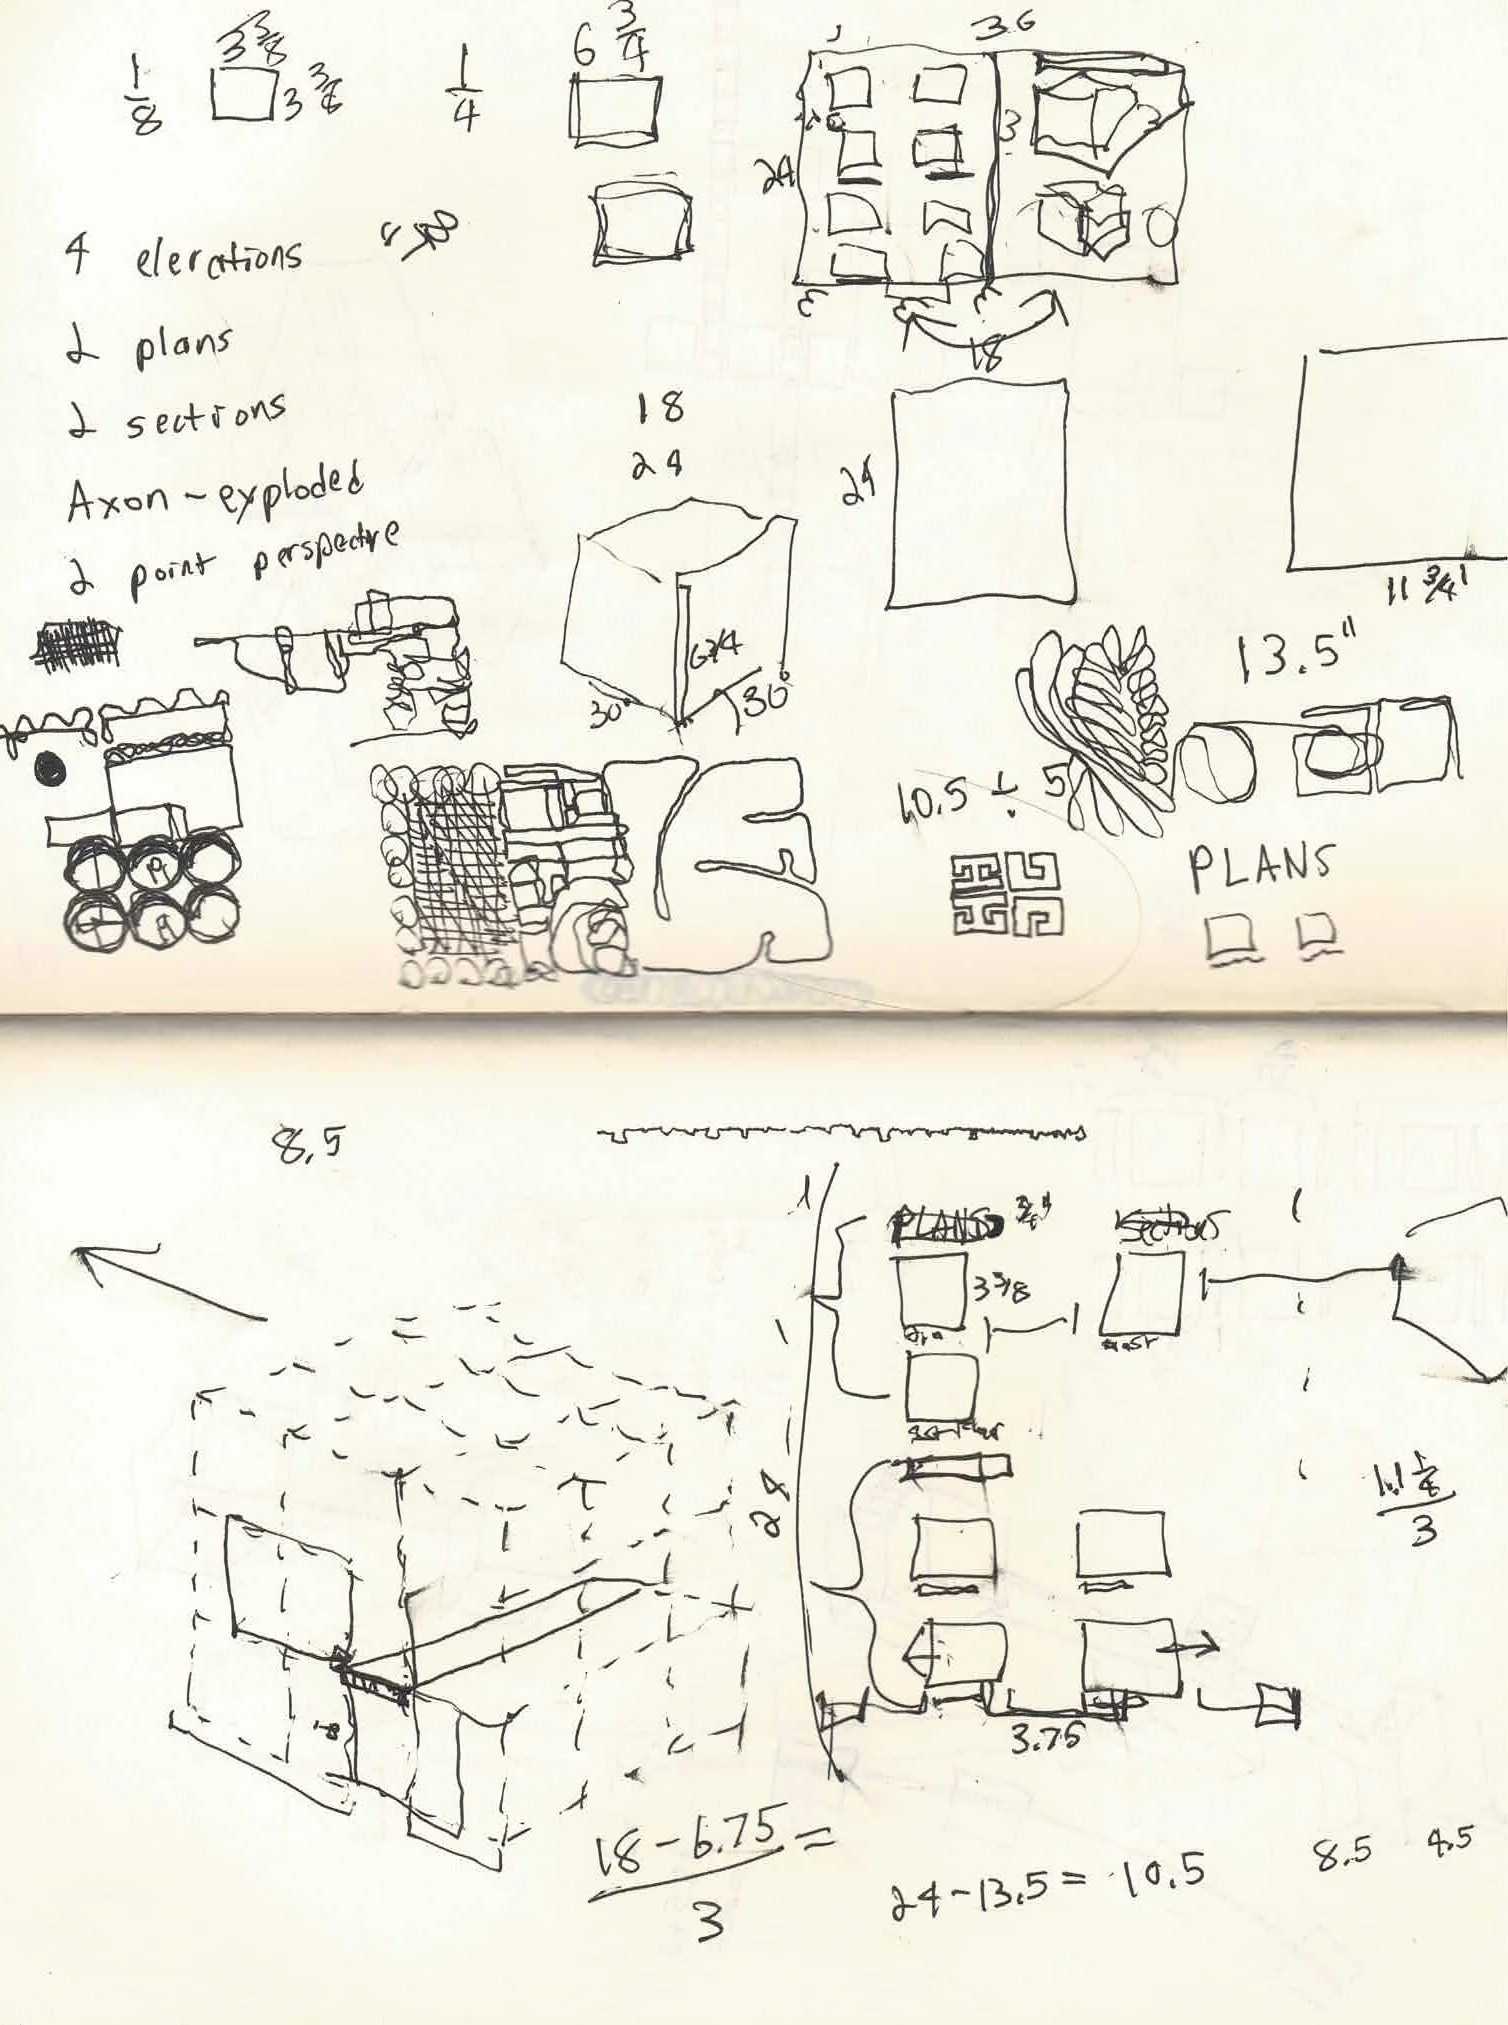 1/8 3 3/8 3 3/8 1/4 6 3/4
36
24 3
3
18
4 elerations
2 plans
2 sections
Axon - exploded
2 point perspectve
18
24
24
11 3/4"
6 3/4
30° 30°
13.5"
10.5 ÷ 5
PLANS
8.5
PLANS 3/4" Sections
3 3/8
24
11 1/4 / 3
3.75
18 - 6.75 / 3 =
24 - 13.5 = 10.5
8.5 4.5